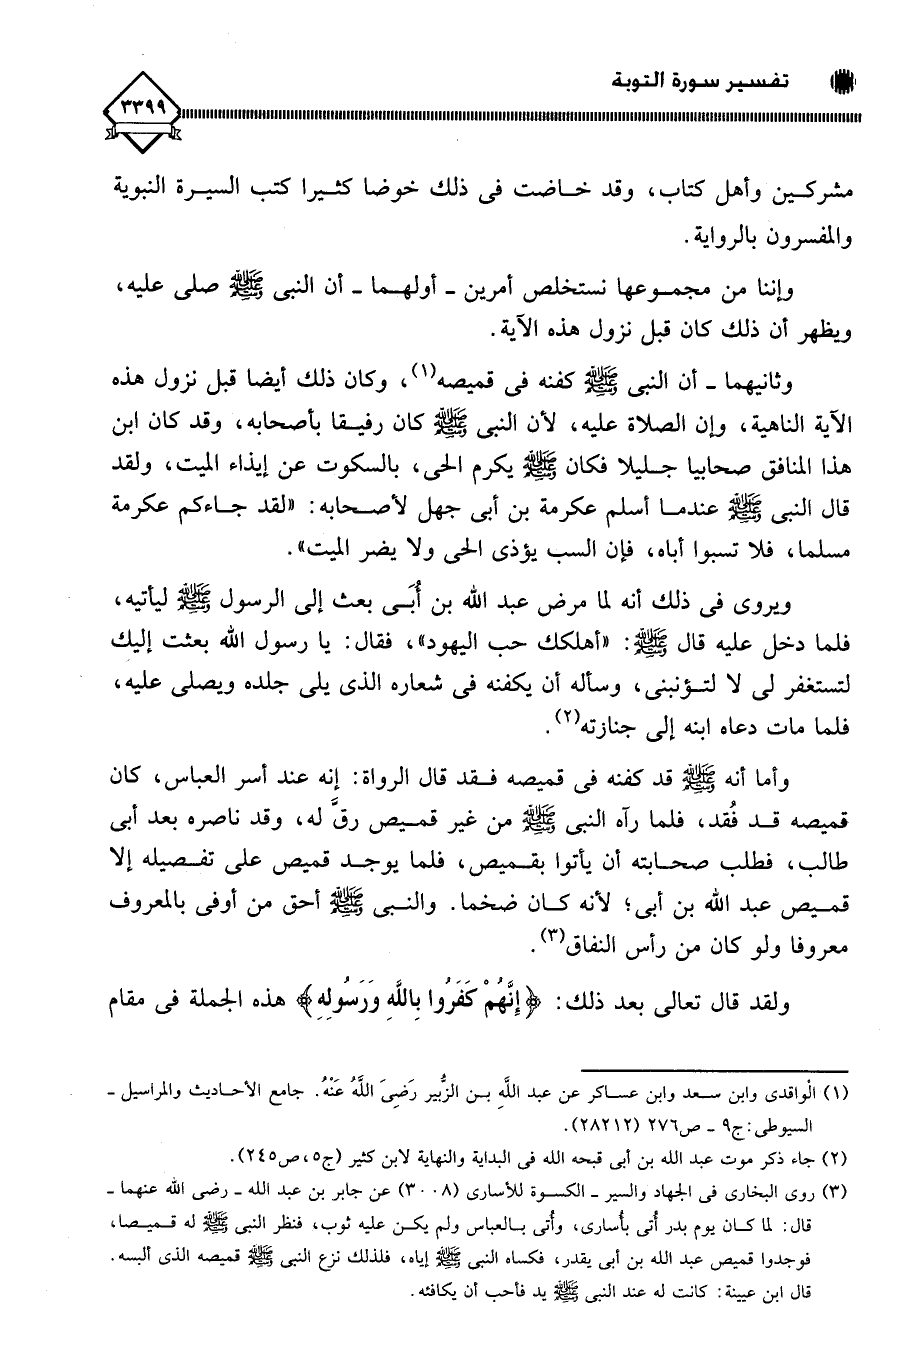 تفسير سورة التوبة
٣٣٩٩
مشركين وأهل كتاب، وقد خاضت فى ذلك خوضا كثيرا كتب السيرة النبوية
والمفسرون بالرواية.
وإننا من مجموعها نستخلص أمرين ـ أولهما ـ أن النبى ﷺ صلى عليه،
ويظهر أن ذلك كان قبل نزول هذه الآية.
وثانيهما ـ أن النبى ﷺ كفنه فى قميصه(١)، وكان ذلك أيضا قبل نزول هذه
الآية الناهية، وإن الصلاة عليه، لأن النبى ﷺ كان رفيقا بأصحابه، وقد كان ابن
هذا المنافق صحابيا جليلا فكان ﷺ يكرم الحى، بالسكوت عن إيذاء الميت، ولقد
قال النبى ﷺ عندما أسلم عكرمة بن أبى جهل لأصحابه: «لقد جاءكم عكرمة
مسلما، فلا تسبوا أباه، فإن السب يؤذى الحى ولا يضر الميت».
ويروى فى ذلك أنه لما مرض عبد الله بن أُبَى بعث إلى الرسول ﷺ ليأتيه،
فلما دخل عليه قال ﷺ: «أهلكك حب اليهود»، فقال: يا رسول الله بعثت إليك
لتستغفر لى لا لتؤنبنى، وسأله أن يكفنه فى شعاره الذى يلى جلده ويصلى عليه،
فلما مات دعاه ابنه إلى جنازته(٢).
وأما أنه ﷺ قد كفنه فى قميصه فقد قال الرواة: إنه عند أسر العباس، كان
قميصه قد فُقد، فلما رآه النبى ﷺ من غير قميص رقَّ له، وقد ناصره بعد أبى
طالب، فطلب صحابته أن يأتوا بقميص، فلما يوجد قميص على تفصيله إلا
قميص عبد الله بن أبى؛ لأنه كان ضخما. والنبى ﷺ أحق من أوفى بالمعروف
معروفا ولو كان من رأس النفاق(٣).
ولقد قال تعالى بعد ذلك: ﴿إِنَّهُمْ كَفَرُوا بِاللَّهِ وَرَسُولِهِ﴾ هذه الجملة فى مقام
(١) الْواقدى وابن سعد وابن عساكر عن عبد اللَّهِ بن الزُّبير رَضِىَ اللَّهُ عَنْهُ. جامع الأحاديث والمراسيل ـ
السيوطى:ج٩ ـ ص٢٧٦ (٢٨٢١٢).
(٢) جاء ذكر موت عبد الله بن أبى قبحه الله فى البداية والنهاية لابن كثير (ج٥، ص٢٤٥).
(٣) روى البخارى فى الجهاد والسير ـ الكسوة للأسارى (٣٠٠٨) عن جابر بن عبد الله ـ رضى الله عنهما ـ
قال: لما كان يوم بدر أُتى بأُسارى، وأُتى بالعباس ولم يكن عليه ثوب، فنظر النبى ﷺ له قميصا،
فوجدوا قميص عبد الله بن أبى يقدر، فكساه النبى ﷺ إياه، فلذلك نزع النبى ﷺ قميصه الذى ألبسه.
قال ابن عيينة: كانت له عند النبى ﷺ يد فأحب أن يكافئه.